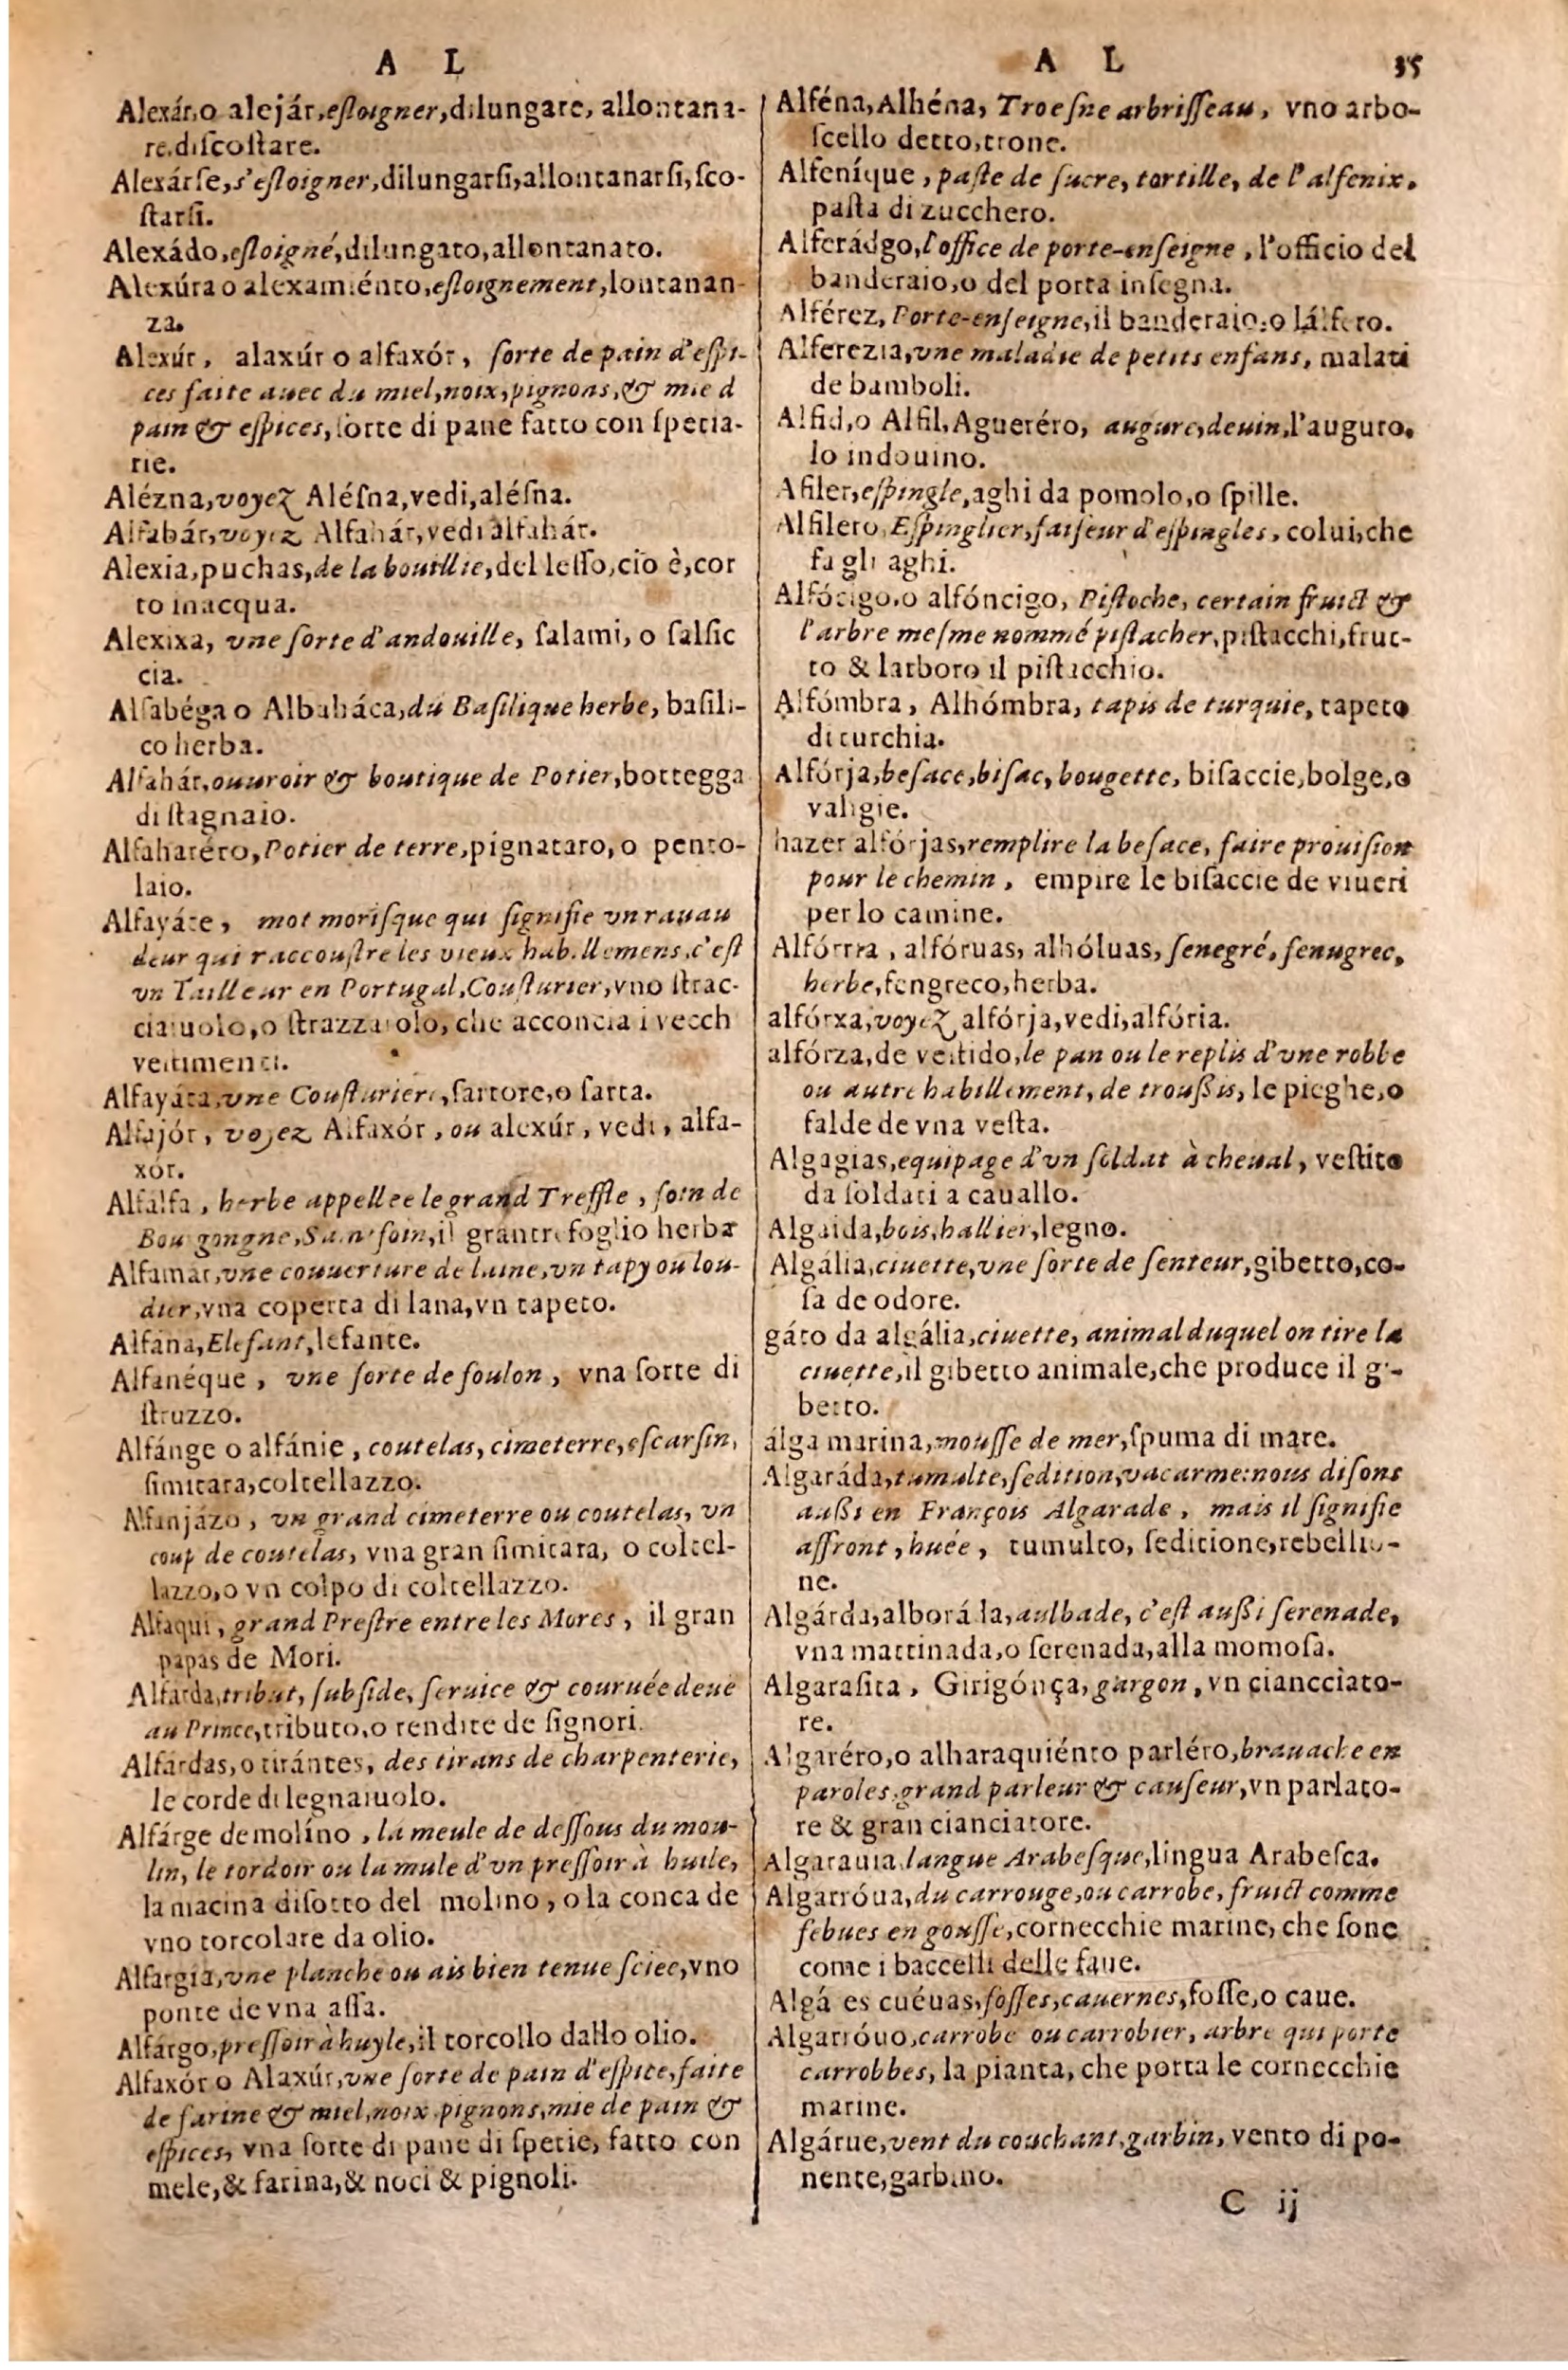 A L
Alexár,o alejár,eſloigner,dilungare, allontana-
re,diſcoſtare.
Alexárſe,s'eſloigner,dilungarſi,allontanarſi,ſco-
ſtarſi.
Alexádo,eſloigné,dilungato,allontanato.
Alexúra o alexamiénto,eſloignement,lontanan-
za.
Alexúr, alaxúr o alfaxór, ſorte de pain d'eſpi-
ces faite auec du miel,noix,pignons,& mie d
pain & eſpices,ſorte di pane fatto con ſpetia-
rie.
Alézna,voyez Aléſna,vedi,aléſna.
Alfabár,voyez Alfahár,vedi alfahár.
Alexia,puchas,de la bouillie,del leſſo,cio è,cor
to in acqua.
Alexixa, vne ſorte d'andouille, ſalami, o ſalſic
cia.
Alfabéga o Albaháca,du Baſilique herbe, baſili-
co herba.
Alfahár,ouuroir & boutique de Potier,bottegga
di ſtagnaio.
Alfaharéro,Potier de terre,pignataro, o pento-
laio.
Alfayáte, mot moriſque qui ſignifie vn rauau
deur qui raccouſtre les vieux habillemens,c'eſt
vn Tailleur en Portugal,Couſturier,vno ſtrac-
ciaiuolo,o ſtrazzaiolo, che acconcia i vecch
veſtimenti.
Alfayáta,vne Couſturiere,ſartore,o ſarta.
Alfajór, voyez Alfaxór, ou alexúr, vedi, alfa-
xór.
Alfalfa, herbe appellee le grand Treffle, foin de
Bourgongne,Sainfoin,il grantrefoglio herba
Alfamár,vne couuerture de laine,vn tapy ou lou-
dier,vna coperta di lana,vn tapeto.
Alfána,Elefant,lefante.
Alfanéque, vne ſorte de foulon, vna ſorte di
ſtruzzo.
Alfánge o alfánie, coutelas, cimeterre,eſcarſin,
ſimitara,coltellazzo.
Alfanjázo, vn grand cimeterre ou coutelas, vn
coup de coutelas, vna gran ſimitara, o coltel-
lazzo,o vn colpo di coltellazzo.
Alfaqui, grand Preſtre entre les Mores, il gran
papas de Mori.
Alfarda,tribut, ſubſide, ſeruice & couruée deuë
au Prince,tributo,o rendite de ſignori.
Alfárdas,o tirántes, des tirans de charpenterie,
le corde di legnaiuolo.
Alfárge de molíno, la meule de deſſous du mou-
lin, le tordoir ou la mule d'vn preſſoir à huile,
la macina diſotto del molino, o la conca de
vno torcolare da olio.
Alfargía,vne planche ou ais bien tenue ſciee,vno
ponte de vna aſſa.
Alfárgo,preſſoir à huyle,il torcollo dallo olio.
Alfaxór o Alaxúr,vne ſorte de pain d'eſpice,faite
de farine & miel,noix,pignons,mie de pain &
eſpices, vna ſorte di pane di ſpetie, fatto con
mele,& farina,& noci & pignoli.
A L 35
Alféna,Alhéna, Troeſne arbriſſeau, vno arbo-
ſcello detto,trone.
Alfeníque, paſte de ſucre, tortille, de l'alfenix.
paſta di zucchero.
Alferádgo,l'office de porte-enſeigne, l'officio del
banderaio,o del porta inſegna.
Alférez, Porte-enſeigne,il banderaio:o lálfero.
Alferezia,vne maladie de petits enfans, malati
de bamboli.
Alfid,o Alfil,Agueréro, augure,deuin,l'auguro.
lo indouino.
Afiler,eſpingle,aghi da pomolo,o ſpille.
Alfilero, Eſpinglier,faiſeur d'eſpingles, colui,che
fa gli aghi.
Alfócigo,o alfóncigo, Piſtoche, certain fruict &
l'arbre meſme nommé piſtacher,piſtacchi,frut-
to & larboro il piſtacchio.
Alfómbra, Alhómbra, tapis de turquie, tapeto
di turchia.
Alfórja,beſace,biſac, bougette, biſaccie,bolge,o
valigie.
hazer alfórjas,remplire la beſace, faire prouiſion
pour le chemin, empire le biſaccie de viueri
per lo camine.
Alfórrra, alfóruas, alhóluas, ſenegré, fenugrec,
herbe,fengreco,herba.
alfórxa,voyez alfórja,vedi,alfória.
alfórza,de veſtido,le pan ou le replis d'vne robbe
ou autre habillement, de trouſſis, le pieghe,o
falde de vna veſta.
Algagias,equipage d'vn ſoldat à cheual, veſtito
da ſoldati a cauallo.
Algaida,bois,hallier,legno.
Algália,ciuette,vne ſorte de ſenteur,gibetto,co-
ſa de odore.
gáto da algália,ciuette, animal duquel on tire la
ciuette,il gibetto animale,che produce il gi-
betto.
álga marina,mouſſe de mer,ſpuma di mare.
Algaráda,tumulte,ſedition,vacarme:nous diſons
auſſi en François Algarade, mais il ſignifie
affront, huée, tumulto, ſeditione,rebellio-
ne.
Algárda,alborá la,aulbade, c'eſt auſſi ſerenade,
vna mattinada,o ſerenada,alla momoſa.
Algaraſita, Girigónça,gargon, vn ciancciato-
re.
Algaréro,o alharaquiénto parléro,brauache en
paroles,grand parleur & cauſeur,vn parlato-
re & gran cianciatore.
Algarauia,langue Arabeſque,lingua Arabeſca.
Algarróua,du carrouge,ou carrobe, fruict comme
febues en gouſſe,cornecchie marine, che ſone
come i baccelli delle faue.
Algá es cuéuas,foſſes,cauernes,foſſe,o caue.
Algarróuo,carrobe ou carrobier, arbre qui porte
carrobbes, la pianta, che porta le cornecchie
marine.
Algárue,vent du couchant,garbin, vento di po-
nente,garbino.
C ij